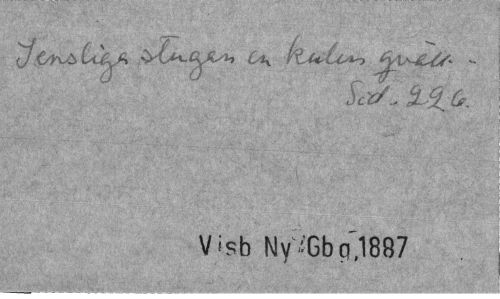 Jensliga stugan en kulen qväll -
Sid. 226.
Visb Ny /Gbg,1887